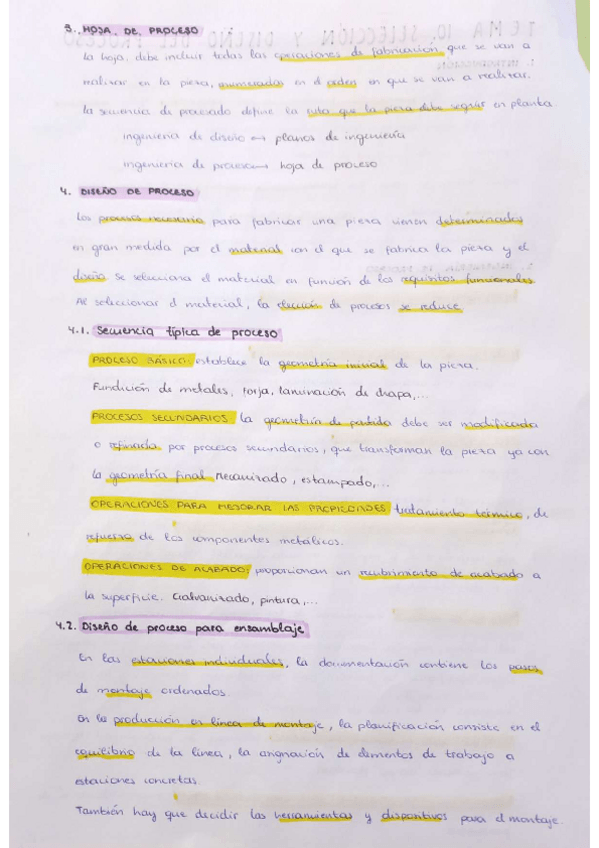 3. HOJA DE PROCESO
La hoja, debe incluir todas las operaciones de fabricación que se van a
realizar en la pieza, enumeradas en el orden en que se van a realizar.
La secuencia de procesado define la ruta que la pieza debe seguir en planta.
ingeniería de diseño → planos de ingeniería
ingeniería de proceso → hoja de proceso
4. DISEÑO DE PROCESO
Los procesos necesarios para fabricar una pieza vienen determinados
en gran medida por el material con el que se fabrica la pieza y el
diseño. Se selecciona el material en función de los requisitos funcionales.
Al seleccionar el material, la elección de procesos se reduce.
4.1. Secuencia típica de proceso
PROCESO BÁSICO: establece la geometría inicial de la pieza.
Fundición de metales, forja, laminación de chapa,...
PROCESOS SECUNDARIOS: la geometría de partida debe ser modificada
o refinada por procesos secundarios, que transforman la pieza ya con
la geometría final. Mecanizado, estampado,...
OPERACIONES PARA MEJORAR LAS PROPIEDADES: tratamiento térmico, de
refuerzo de los componentes metálicos.
OPERACIONES DE ACABADO: proporcionan un recubrimiento de acabado a
la superficie. Galvanizado, pintura,...
4.2. Diseño de proceso para ensamblaje
En las estaciones individuales, la documentación contiene los pasos
de montaje ordenados.
En la producción en línea de montaje, la planificación consiste en el
equilibrio de la línea, la asignación de elementos de trabajo a
estaciones concretas.
También hay que decidir las herramientas y dispositivos para el montaje.